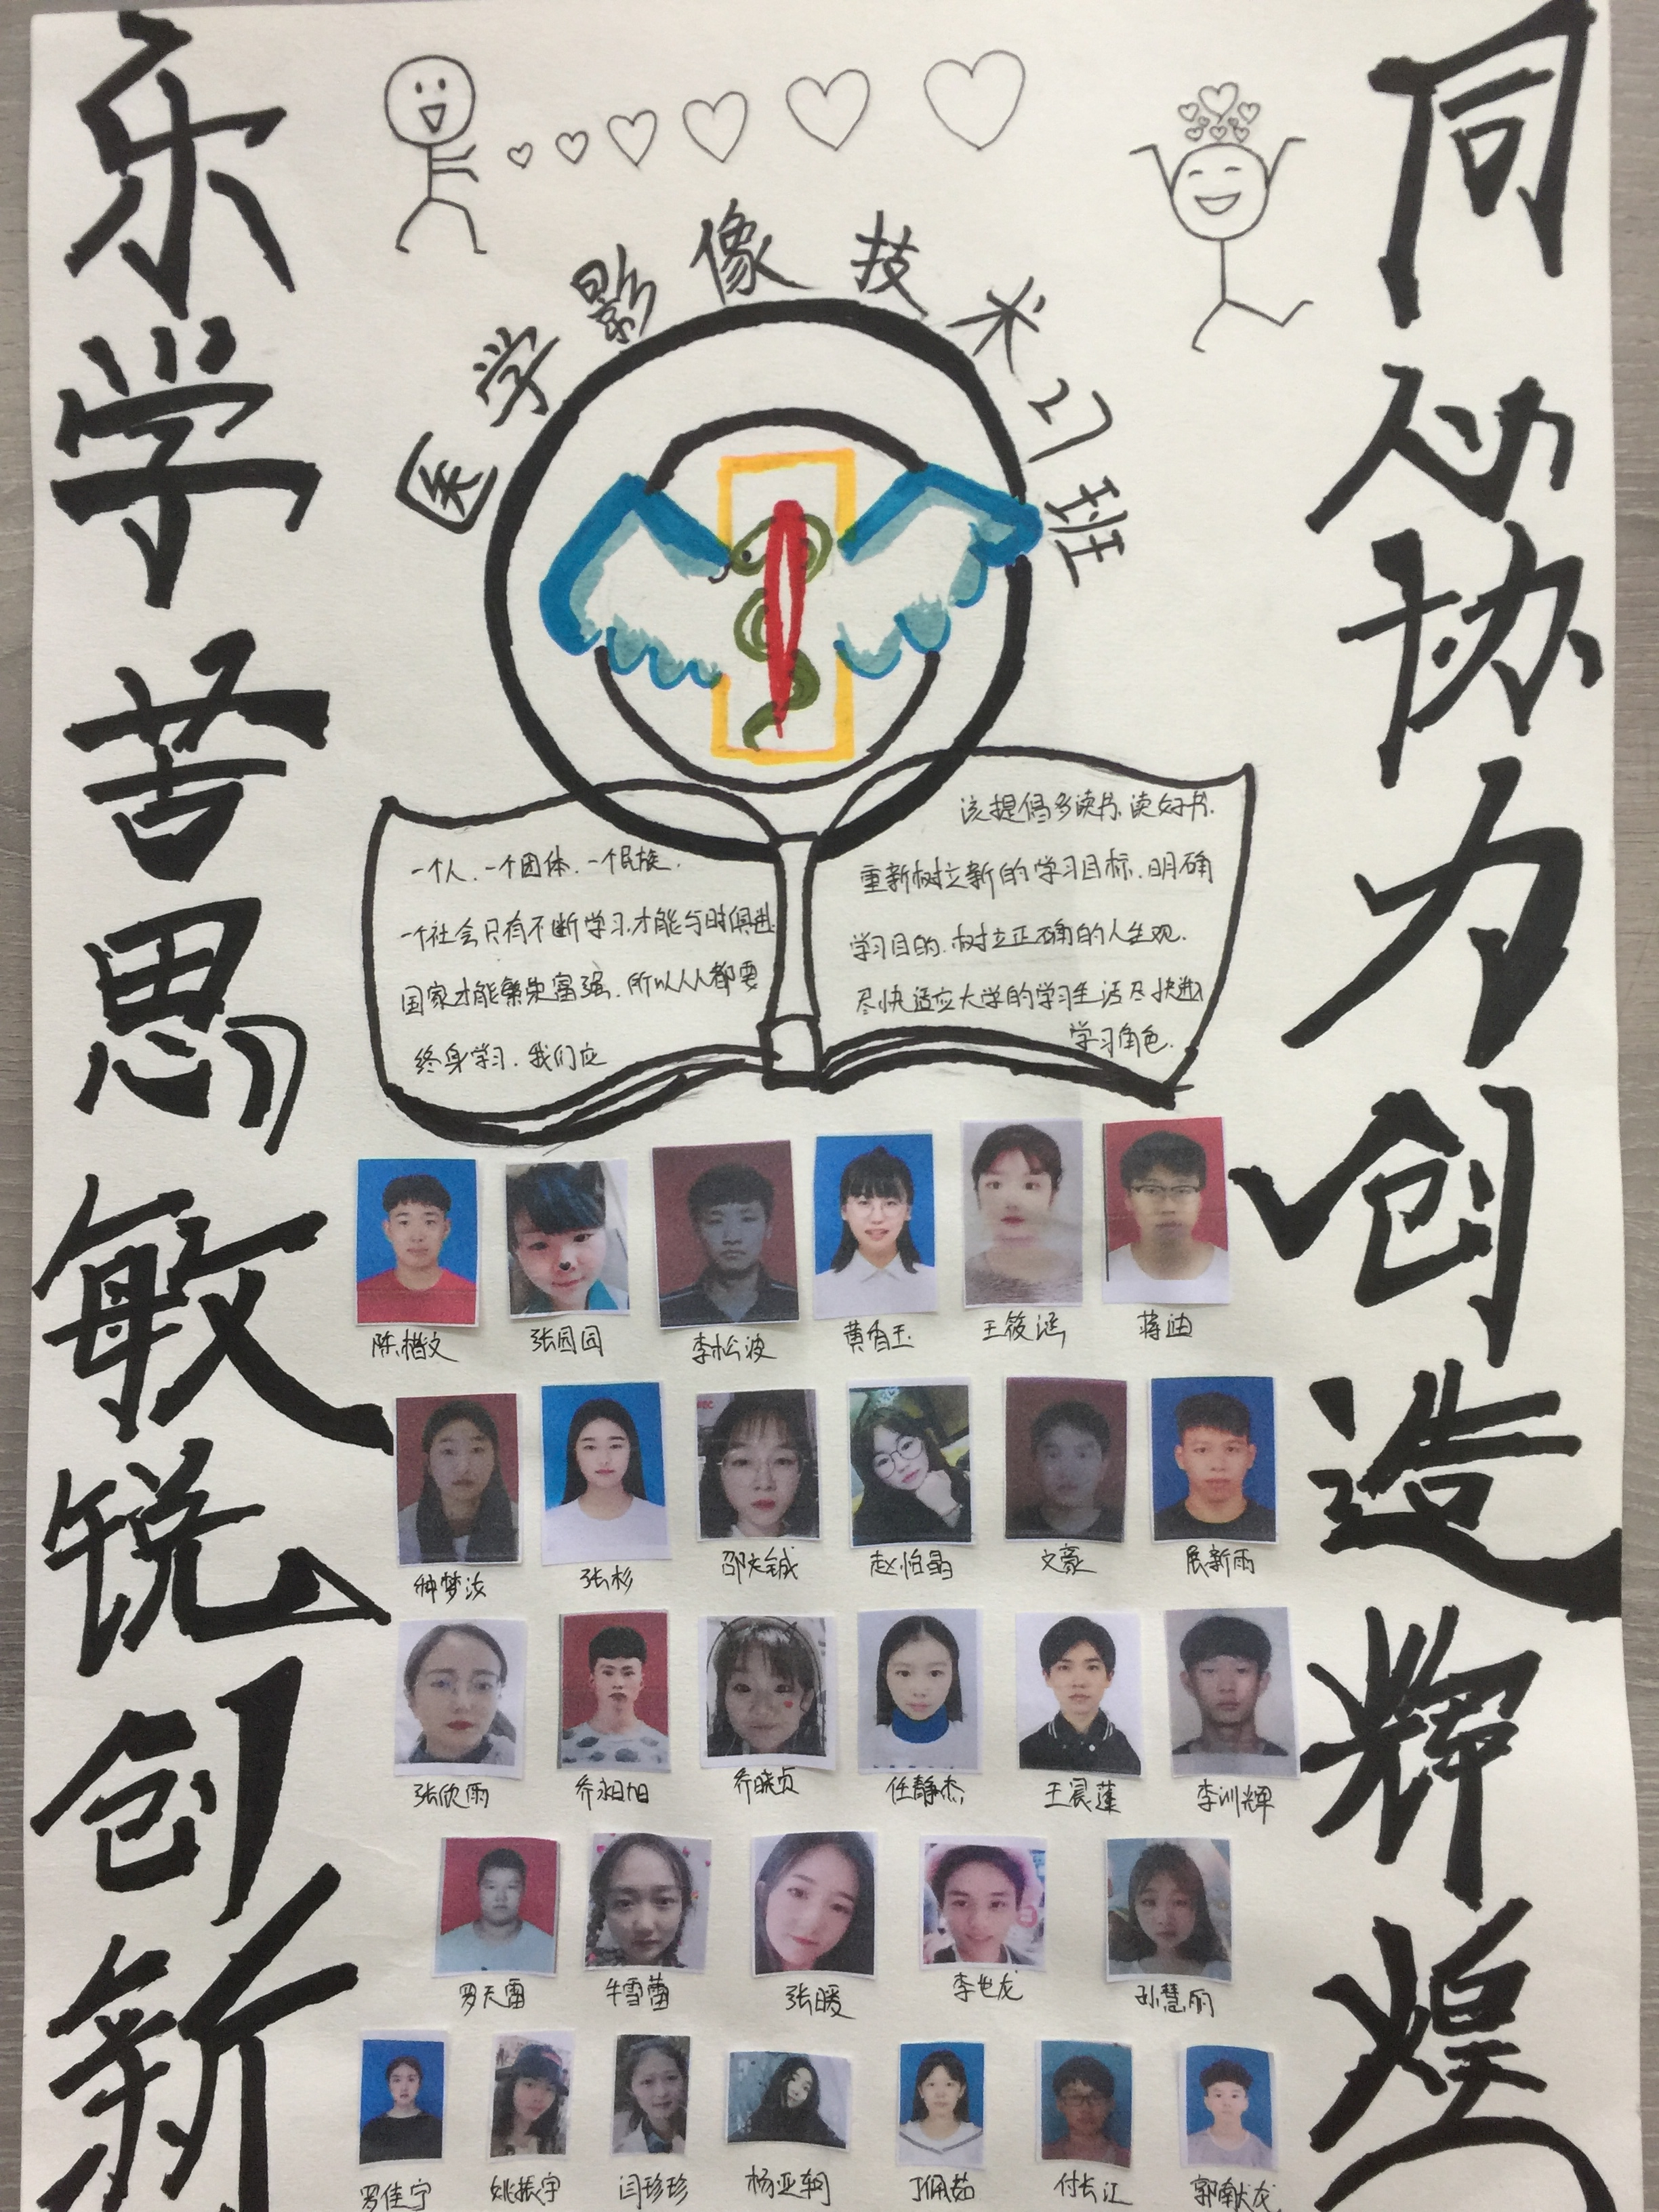 乐学苦思敏锐创新
同心协力创造辉煌
医学影像技术27班
一个人、一个团体、一个民族、
一个社会只有不断学习,才能与时俱进
国家才能繁荣富强、所以人人都要
终身学习、我们应
该提倡多读书、读好书、
重新树立新的学习目标、明确
学习目的、树立正确的人生观、
尽快适应大学的学习生活尽快进入
学习角色.
陈楷文 张园园 李松波 黄香玉 王筱涵 蒋迪
钟梦汝 张杉 赵怡晶 文豪 展新雨
张欣雨 乔旭 乔晓贞 任静杰 王晨蓬 李训辉
罗天雷 牛雪蕾 张暖 李世龙 孙慧丽
罗佳宁 姚振宇 闫珍珍 杨亚轲 丁佩茹 付长江 郭献龙